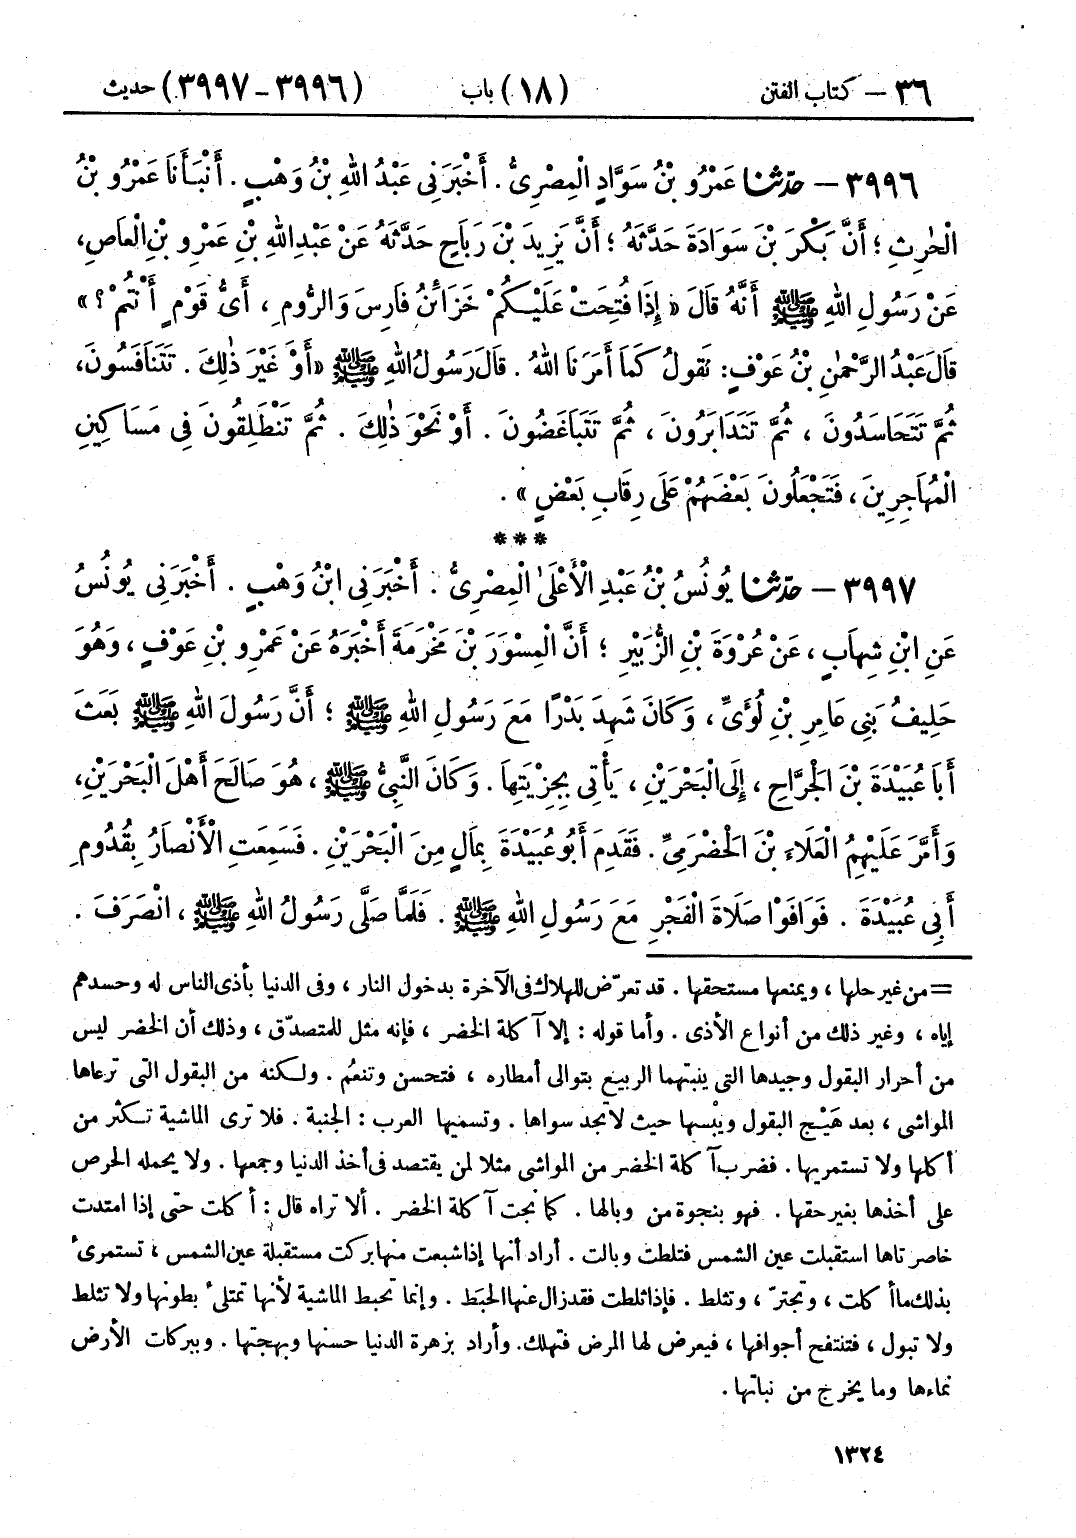 ٣٦ — كتاب الفتن (١٨) باب (٣٩٩٦ - ٣٩٩٧) حديث
٣٩٩٦ — حدّثنا عَمْرُو بْنُ سَوَّادٍ الْمِصْرِىُّ . أَخْبَرَنِى عَبْدُ اللهِ بْنُ وَهْبٍ . أَنْبَأَنَا عَمْرُو بْنُ
الْحٰرِثِ ؛ أَنَّ بَكْرَ بْنَ سَوَادَةَ حَدَّثَهُ ؛ أَنَّ يَزِيدَ بْنَ رَبَاحٍ حَدَّثَهُ عَنْ عَبْدِ اللهِ بْنِ عَمْرِو بْنِ الْعَاصِ،
عَنْ رَسُولِ اللهِ ﷺ أَنَّهُ قَالَ « إِذَا فُتِحَتْ عَلَيْكُمْ خَزَائِنُ فَارِسَ وَالرُّومِ ، أَىُّ قَوْمٍ أَنْتُمْ ؟ »
قَالَ عَبْدُ الرَّحْمٰنِ بْنُ عَوْفٍ: نَقُولُ كَمَا أَمَرَنَا اللهُ . قَالَ رَسُولُ اللهِ ﷺ « أَوْ غَيْرَ ذٰلِكَ . تَتَنَافَسُونَ،
ثُمَّ تَتَحَاسَدُونَ ، ثُمَّ تَتَدَابَرُونَ ، ثُمَّ تَتَبَاغَضُونَ . أَوْ نَحْوَ ذٰلِكَ . ثُمَّ تَنْطَلِقُونَ فِى مَسَاكِينِ
الْمُهَاجِرِينَ ، فَتَجْعَلُونَ بَعْضَهُمْ عَلَى رِقَابِ بَعْضٍ » .
* * *
٣٩٩٧ — حدّثنا يُونُسُ بْنُ عَبْدِ الْأَعْلَىٰ الْمِصْرِىُّ . أَخْبَرَنِى ابْنُ وَهْبٍ . أَخْبَرَنِى يُونُسُ
عَنِ ابْنِ شِهَابٍ ، عَنْ عُرْوَةَ بْنِ الزُّبَيْرِ ؛ أَنَّ الْمِسْوَرَ بْنَ مَخْرَمَةَ أَخْبَرَهُ عَنْ عَمْرِو بْنِ عَوْفٍ ، وَهُوَ
حَلِيفُ بَنِى عَامِرِ بْنِ لُؤَىٍّ ، وَكَانَ شَهِدَ بَدْرًا مَعَ رَسُولِ اللهِ ﷺ ؛ أَنَّ رَسُولَ اللهِ ﷺ بَعَثَ
أَبَا عُبَيْدَةَ بْنَ الْجَرَّاحِ ، إِلَى الْبَحْرَيْنِ ، يَأْتِى بِجِزْيَتِهَا . وَكَانَ النَّبِىُّ ﷺ ، هُوَ صَالَحَ أَهْلَ الْبَحْرَيْنِ،
وَأَمَّرَ عَلَيْهِمُ الْعَلَاءَ بْنَ الْحَضْرَمِىِّ . فَقَدِمَ أَبُو عُبَيْدَةَ بِمَالٍ مِنَ الْبَحْرَيْنِ . فَسَمِعَتِ الْأَنْصَارُ بِقُدُومِ
أَبِى عُبَيْدَةَ . فَوَافَوْا صَلَاةَ الْفَجْرِ مَعَ رَسُولِ اللهِ ﷺ . فَلَمَّا صَلَّى رَسُولُ اللهِ ﷺ ، انْصَرَفَ .
= من غير حلها ، ويمنعها مستحقها . قد تعرّض للهلاك فى الآخرة بدخول النار ، وفى الدنيا بأذى الناس له وحسدهم
إياه ، وغير ذلك من أنواع الأذى . وأما قوله : إلا آكلة الخضر ، فإنه مثل للمتصدّق ، وذلك أن الخضر ليس
من أحرار البقول وجيدها التى ينبتهما الربيع بتوالى أمطاره ، فتحسن وتنعُم . ولكنه من البقول التى ترعاها
المواشى ، بعد هَيْج البقول ويُبْسها حيث لا تجد سواها . وتسميها العرب : الجنبة . فلا ترى الماشية تكثر من
أكلها ولا تستمريها . فضرب آكلة الخضر من المواشى مثلا لمن يقتصد فى أخذ الدنيا وجمعها . ولا يحمله الحرص
على أخذها بغير حقها . فهو بنجوة من وبالها . كما نجت آكلة الخضر . ألا تراه قال : أكلت حتى إذا امتدت
خاصرتاها استقبلت عين الشمس فثلطت وبالت . أراد أنها إذا شبعت منها بركت مستقبلة عين الشمس ، تستمرىء
بذلك ما أكلت ، وتجترّ ، وتثلط . فإذا ثلطت فقد زال عنها الحبَط . وإنما تحبط الماشية لأنها تمتلىء بطونها ولا تثلط
ولا تبول ، فتنتفح أجوافها ، فيعرض لها المرض فتهلك. وأراد بزهرة الدنيا حسنها وبهجتها . وببركات الأرض
نماءها وما يخرج من نباتها .
١٣٢٤